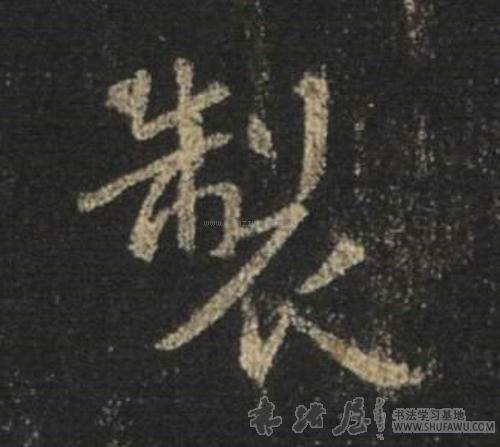 製
书法学习基地
WWW.SHUFAWU.COM